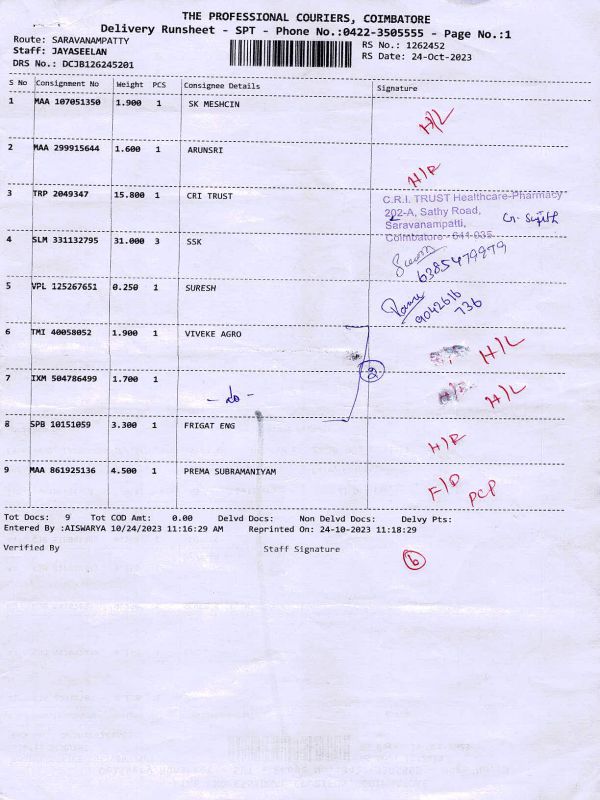 THE PROFESSIONAL COURIERS, COIMBATORE
Delivery Runsheet - SPT - Phone No.:0422-3505555 - Page No.:1
Route: SARAVANAMPATTY
Staff: JAYASEELAN
DRS No.: DCJB126245201
RS No.: 1262452
RS Date: 24-Oct-2023
S No Consignment No Weight PCS Consignee Details Signature
1 MAA 107051350 1.900 1 SK MESHCIN H/L
2 MAA 299915644 1.600 1 ARUNSRI H/R
3 TRP 2049347 15.800 1 CRI TRUST
C.R.I. TRUST Healthcare-Pharmacy
202-A, Sathy Road,
Saravanampatti,
Coimbatore - 641 035.
G. Sujith
4 SLM 331132795 31.000 3 SSK
6385479979
5 VPL 125267651 0.250 1 SURESH
9042616
736
6 TMI 40058052 1.900 1 VIVEKE AGRO H/L
2
7 IXM 504786499 1.700 1 - do - H/R H/L
8 SPB 10151059 3.300 1 FRIGAT ENG H/R
9 MAA 861925136 4.500 1 PREMA SUBRAMANIYAM F/D PCP
Tot Docs: 9 Tot COD Amt: 0.00 Delvd Docs: Non Delvd Docs: Delvy Pts:
Entered By :AISWARYA 10/24/2023 11:16:29 AM Reprinted On: 24-10-2023 11:18:29
Verified By Staff Signature
6